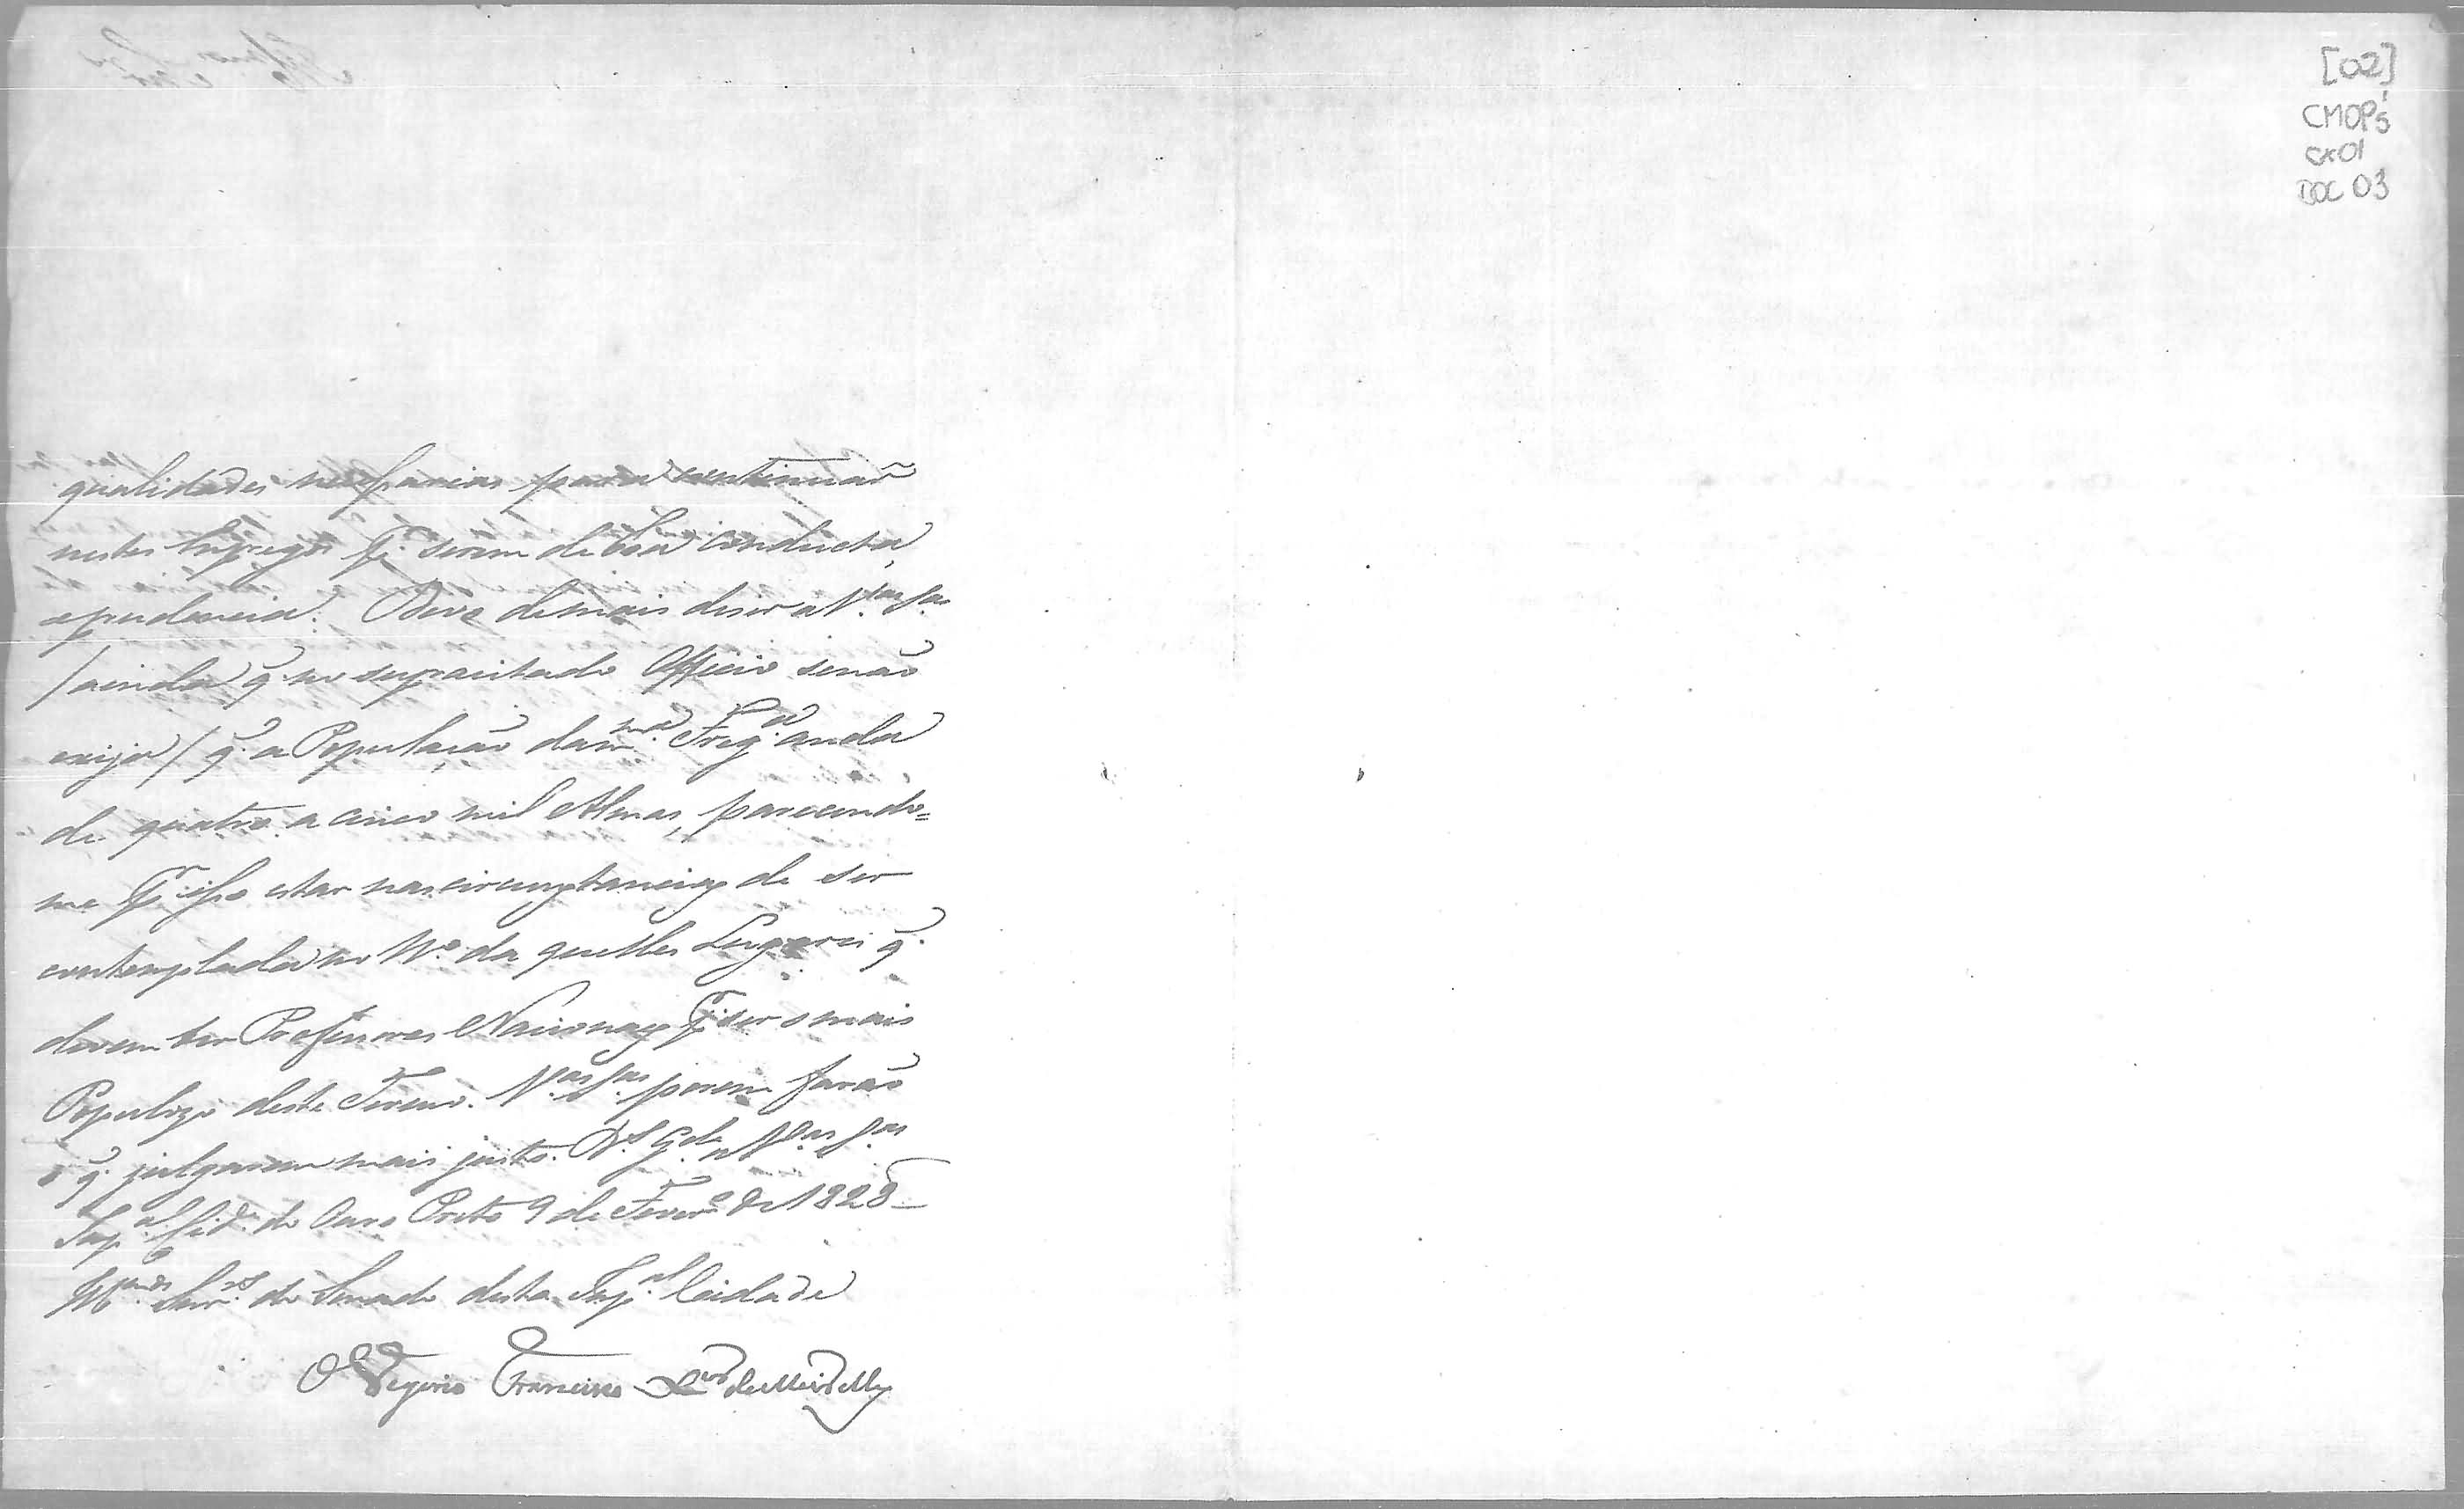 qualidades necessarias para continuar
nestes Empregos p.r serem de boa conducta,
e prudencia. Devo de mais diser a V.as S.as
/ainda q.' no supracitado Officio senão
exija/ q.' a População da m.ma Freg.a anda
de quatro a cinco mil Almas, parecendo=
me p.r isso estar nas circunstancias de ser
contemplada no N.o da quelles Lugares q.'
devem ter Professores Nacionaes p.r ser o mais
Populozo deste Termo. V.as S.as porem farão
o q.' julgarem mais justo. D.s G.de a V.as S.as
Imp.al Cid.e do Ouro Preto 9 de Fever.o de 1828
Snr.es do Senado desta Imp.al Cidade
Francisco
[02]
CMOP
CX01
DOC 03